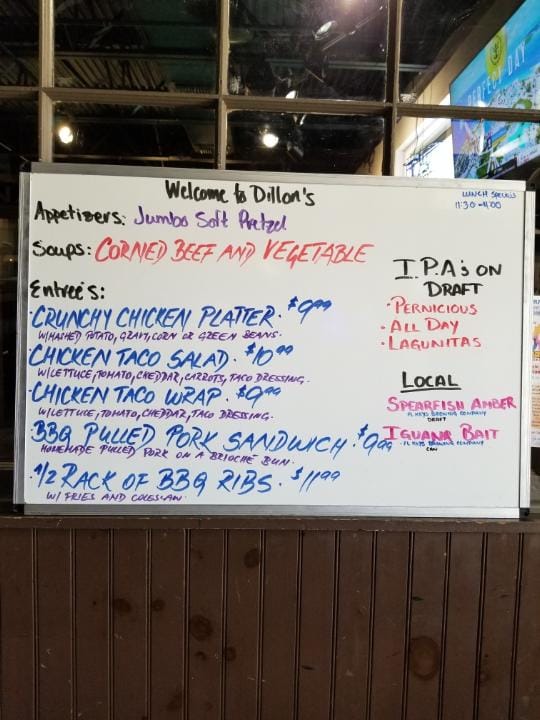 PERFECT DAY
Welcome to Dillon's
LUNCH SPECIALS
11:30-4:00
Appetizers: Jumbo Soft Pretzel
Soups: CORNED BEEF AND VEGETABLE
Entreé's:
· CRUNCHY CHICKEN PLATTER · $9.99
W/MASHED POTATO, GRAVY, CORN OR GREEN BEANS.
CHICKEN TACO SALAD · $10.99
W/LETTUCE, TOMATO, CHEDDAR, CARROTS, TACO DRESSING.
· CHICKEN TACO WRAP · $9.99
W/LETTUCE, TOMATO, CHEDDAR, TACO DRESSING.
BBQ PULLED PORK SANDWICH · $9.99
HOMEMADE PULLED PORK ON A BRIOCHE BUN.
· 1/2 RACK OF BBQ RIBS · $11.99
W/ FRIES AND COLESLAW.
I.P.A's ON
DRAFT
· PERNICIOUS
· ALL DAY
· LAGUNITAS
LOCAL
SPEARFISH AMBER
FL KEYS BREWING COMPANY
DRAFT
IGUANA BAIT
FL KEYS BREWING COMPANY
CAN